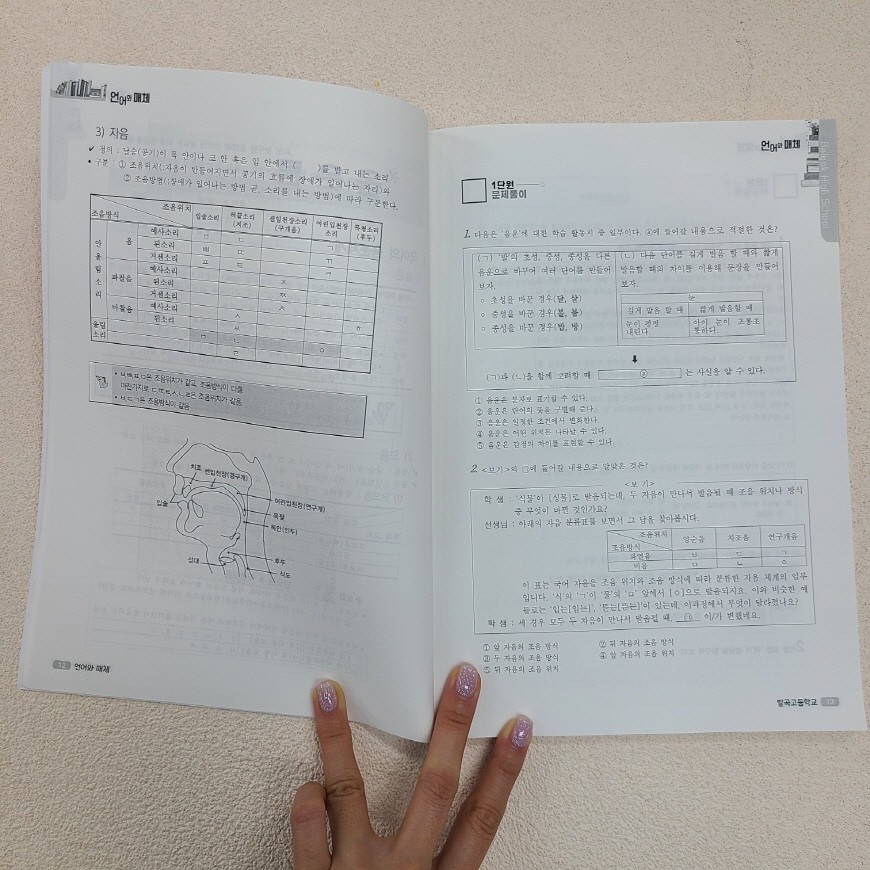 언어와 매체
3) 자음
✔ 정의 : 날숨(공기)이 목 안이나 코 한 혹은 입 안에서 ( )를 받고 내는 소리
• 구분 : ① 조음위치(;자음이 만들어지면서 공기의 흐름에 장애가 일어나는 자리)와
② 조음방법(;장애가 일어나는 방법 곧, 소리를 내는 방법)에 따라 구분한다.
조음위치
조음방식
입술소리
혀끝소리 (치조)
센입천장소리 (구개음)
여린입천장 소리
목청소리 (후두)
안울림소리
예사소리 ㅂ ㄷ ㄱ
된소리 ㅃ ㄸ ㄲ
거센소리 ㅍ ㅌ ㅋ
파찰음 예사소리 ㅈ
된소리 ㅉ
거센소리 ㅊ
마찰음 예사소리 ㅅ ㅎ
된소리 ㅆ
울림소리 ㅁ ㄴ ㅇ
ㄹ
• ㅂㅃㅍㅁ은 조음위치가 같고, 조음방식이 다름.
마찬가지로 ㄷㄸㅌㅅㄴㄹ은 조음위치가 같음.
• ㅂㄷㄱ은 조음방식이 같음
치조
센입천장(경구개)
여린입천장(연구개)
입술
목젖
목안(인두)
성대
후두
식도
12 언어와 매체
언어와 매체
1단원
문제풀이
1. 다음은 '음운'에 대한 학습 활동지 중 일부이다. ⓐ에 들어갈 내용으로 적절한 것은?
(ㄱ) '발'의 초성, 중성, 종성을 다른
음운으로 바꾸어 여러 단어를 만들어
보자.
○ 초성을 바꾼 경우(달, 살)
○ 중성을 바꾼 경우(볼, 불)
○ 종성을 바꾼 경우(밥, 방)
(ㄴ) 다음 단어를 길게 발음 할 때와 짧게
발음할 때의 차이를 이용해 문장을 만들어
보자.
눈
길게 발음 할 때 짧게 발음할 때
눈이 펑펑 내린다.
아이 눈이 초롱초롱하다.
(ㄱ)과 (ㄴ)을 함께 고려할 때 ⓐ 는 사실을 알 수 있다.
① 음운은 문자로 표기할 수 있다.
② 음운은 단어의 뜻을 구별해 준다.
③ 음운은 일정한 조건에서 변화한다.
④ 음운은 어떤 위치든 나타날 수 있다.
⑤ 음운은 감정의 차이를 표현할 수 있다.
2. <보기>의 □에 들어갈 내용으로 알맞은 것은?
<보 기>
학 생 : '식물'이 [싱물]로 발음되는데, 두 자음이 만나서 발음될 때 조음 위치나 방식
중 무엇이 바뀐 것인가요?
선생님 : 아래의 자음 분류표를 보면서 그 답을 찾아봅시다.
조음위치
조음방식
양순음 치조음 연구개음
파열음 ㅂ ㄷ ㄱ
비음 ㅁ ㄴ ㅇ
이 표는 국어 자음을 조음 위치와 조음 방식에 따라 분류한 자음 체계의 일부
입니다. '식'의 'ㄱ'이 '물'의 'ㅁ' 앞에서 [ㅇ]으로 발음되지요. 이와 비슷한 예
들로는 '입는[임는]', '뜯는[뜬는]'이 있는데, 이과정에서 무엇이 달라졌나요?
학 생 : 세 경우 모두 두 자음이 만나서 발음될 때, 이/가 변했네요.
① 앞 자음의 조음 방식
② 뒤 자음의 조음 방식
③ 두 자음의 조음 방식
④ 앞 자음의 조음 위치
⑤ 뒤 자음의 조음 위치
발곡고등학교 13